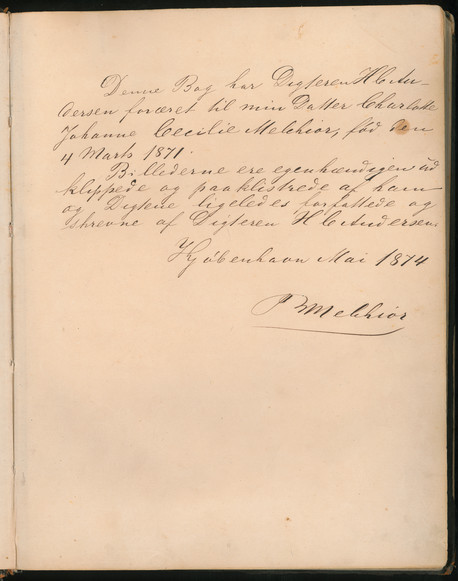 Denne Bog har Digteren H C An-
dersen foræret til min Datter Charlotte
Johanne Cecilie Melchior, fød den
4 Marts 1871.
Billederne ere egenhændigen ud
klippede og paaklistrede af ham
og Digtene ligeledes forfattede og
skrevne af Digteren H C Andersen.
Kjøbenhavn Mai 1874
Melchior